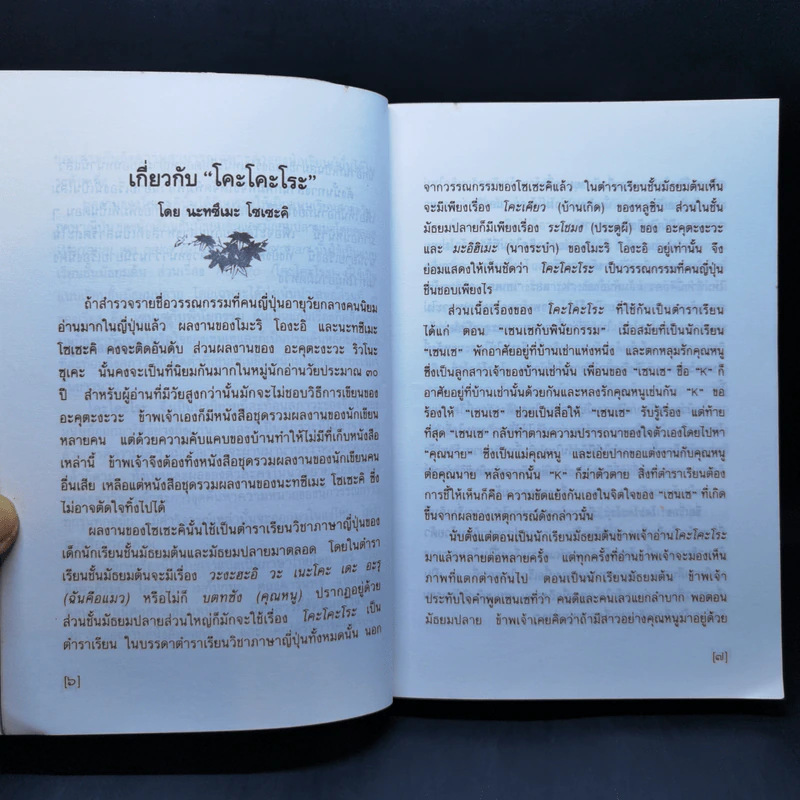 เกี่ยวกับ “โคะโคะโระ”
โดย นะทซึเมะ โซเซะคิ
ถ้าสำรวจรายชื่อวรรณกรรมที่คนญี่ปุ่นอายุวัยกลางคนนิยม
อ่านมากในญี่ปุ่นแล้ว ผลงานของโมะริ โองะอิ และนะทซึเมะ
โซเซะคิ คงจะติดอันดับ ส่วนผลงานของ อะคุตะงะวะ ริวโนะ
ซุเคะ นั้นคงจะเป็นที่นิยมกันมากในหมู่นักอ่านวัยประมาณ ๓๐
ปี สำหรับผู้อ่านที่มีวัยสูงกว่านั้นมักจะไม่ชอบวิธีการเขียนของ
อะคุตะงะวะ ข้าพเจ้าเองก็มีหนังสือชุดรวมผลงานของนักเขียน
หลายคน แต่ด้วยความคับแคบของบ้านทำให้ไม่มีที่เก็บหนังสือ
เหล่านี้ ข้าพเจ้าจึงต้องทิ้งหนังสือชุดรวมผลงานของนักเขียนคน
อื่นเสีย เหลือแต่หนังสือชุดรวมผลงานของนะทซึเมะ โซเซะคิ ซึ่ง
ไม่อาจตัดใจทิ้งไปได้
ผลงานของโซเซะคินั้นใช้เป็นตำราเรียนวิชาภาษาญี่ปุ่นของ
เด็กนักเรียนชั้นมัธยมต้นและมัธยมปลายมาตลอด โดยในตำรา
เรียนชั้นมัธยมต้นจะมีเรื่อง วะงะฮะอิ วะ เนะโคะ เดะ อะรุ
(ฉันคือแมว) หรือไม่ก็ บดทชัง (คุณหนู) ปรากฏอยู่ด้วย
ส่วนชั้นมัธยมปลายส่วนใหญ่ก็มักจะใช้เรื่อง โคะโคะโระ เป็น
ตำราเรียน ในบรรดาตำราเรียนวิชาภาษาญี่ปุ่นทั้งหมดนั้น นอก
[๖]
จากวรรณกรรมของโซเซะคิแล้ว ในตำราเรียนชั้นมัธยมต้นเห็น
จะมีเพียงเรื่อง โคะเคียว (บ้านเกิด) ของหลู่ซิ่น ส่วนในชั้น
มัธยมปลายก็มีเพียงเรื่อง ระโชมง (ประตูผี) ของ อะคุตะงะวะ
และ มะอิฮิเมะ (นางระบำ) ของโมะริ โองะอิ อยู่เท่านั้น จึง
ย่อมแสดงให้เห็นชัดว่า โคะโคะโระ เป็นวรรณกรรมที่คนญี่ปุ่น
ชื่นชอบเพียงไร
ส่วนเนื้อเรื่องของ โคะโคะโระ ที่ใช้กันเป็นตำราเรียน
ได้แก่ ตอน "เซนเซกับพินัยกรรม" เมื่อสมัยที่เป็นนักเรียน
"เซนเซ" พักอาศัยอยู่ที่บ้านเช่าแห่งหนึ่ง และตกหลุมรักคุณหนู
ซึ่งเป็นลูกสาวเจ้าของบ้านเช่านั้น เพื่อนของ "เซนเซ" ชื่อ "K" ก็
อาศัยอยู่ที่บ้านเช่านั้นด้วยกันและหลงรักคุณหนูเช่นกัน "K" ขอ
ร้องให้ "เซนเซ" ช่วยเป็นสื่อให้ "เซนเซ" รับรู้เรื่อง แต่ท้าย
ที่สุด "เซนเซ" กลับทำตามความปรารถนาของใจตัวเองโดยไปหา
"คุณนาย" ซึ่งเป็นแม่คุณหนู และเอ่ยปากขอแต่งงานกับคุณหนู
ต่อคุณนาย หลังจากนั้น "K" ก็ฆ่าตัวตาย สิ่งที่ตำราเรียนต้อง
การชี้ให้เห็นก็คือ ความขัดแย้งกันเองในจิตใจของ "เซนเซ" ที่เกิด
ขึ้นจากผลของเหตุการณ์ดังกล่าวนั้น
นับตั้งแต่ตอนเป็นนักเรียนมัธยมต้นข้าพเจ้าอ่านโคะโคะโระ
มาแล้วหลายต่อหลายครั้ง แต่ทุกครั้งที่อ่านข้าพเจ้าจะมองเห็น
ภาพที่แตกต่างกันไป ตอนเป็นนักเรียนมัธยมต้น ข้าพเจ้า
ประทับใจคำพูดเซนเซที่ว่า คนดีและคนเลวแยกลำบาก พอตอน
มัธยมปลาย ข้าพเจ้าเคยคิดว่าถ้ามีสาวอย่างคุณหนูมาอยู่ด้วย
[๗]